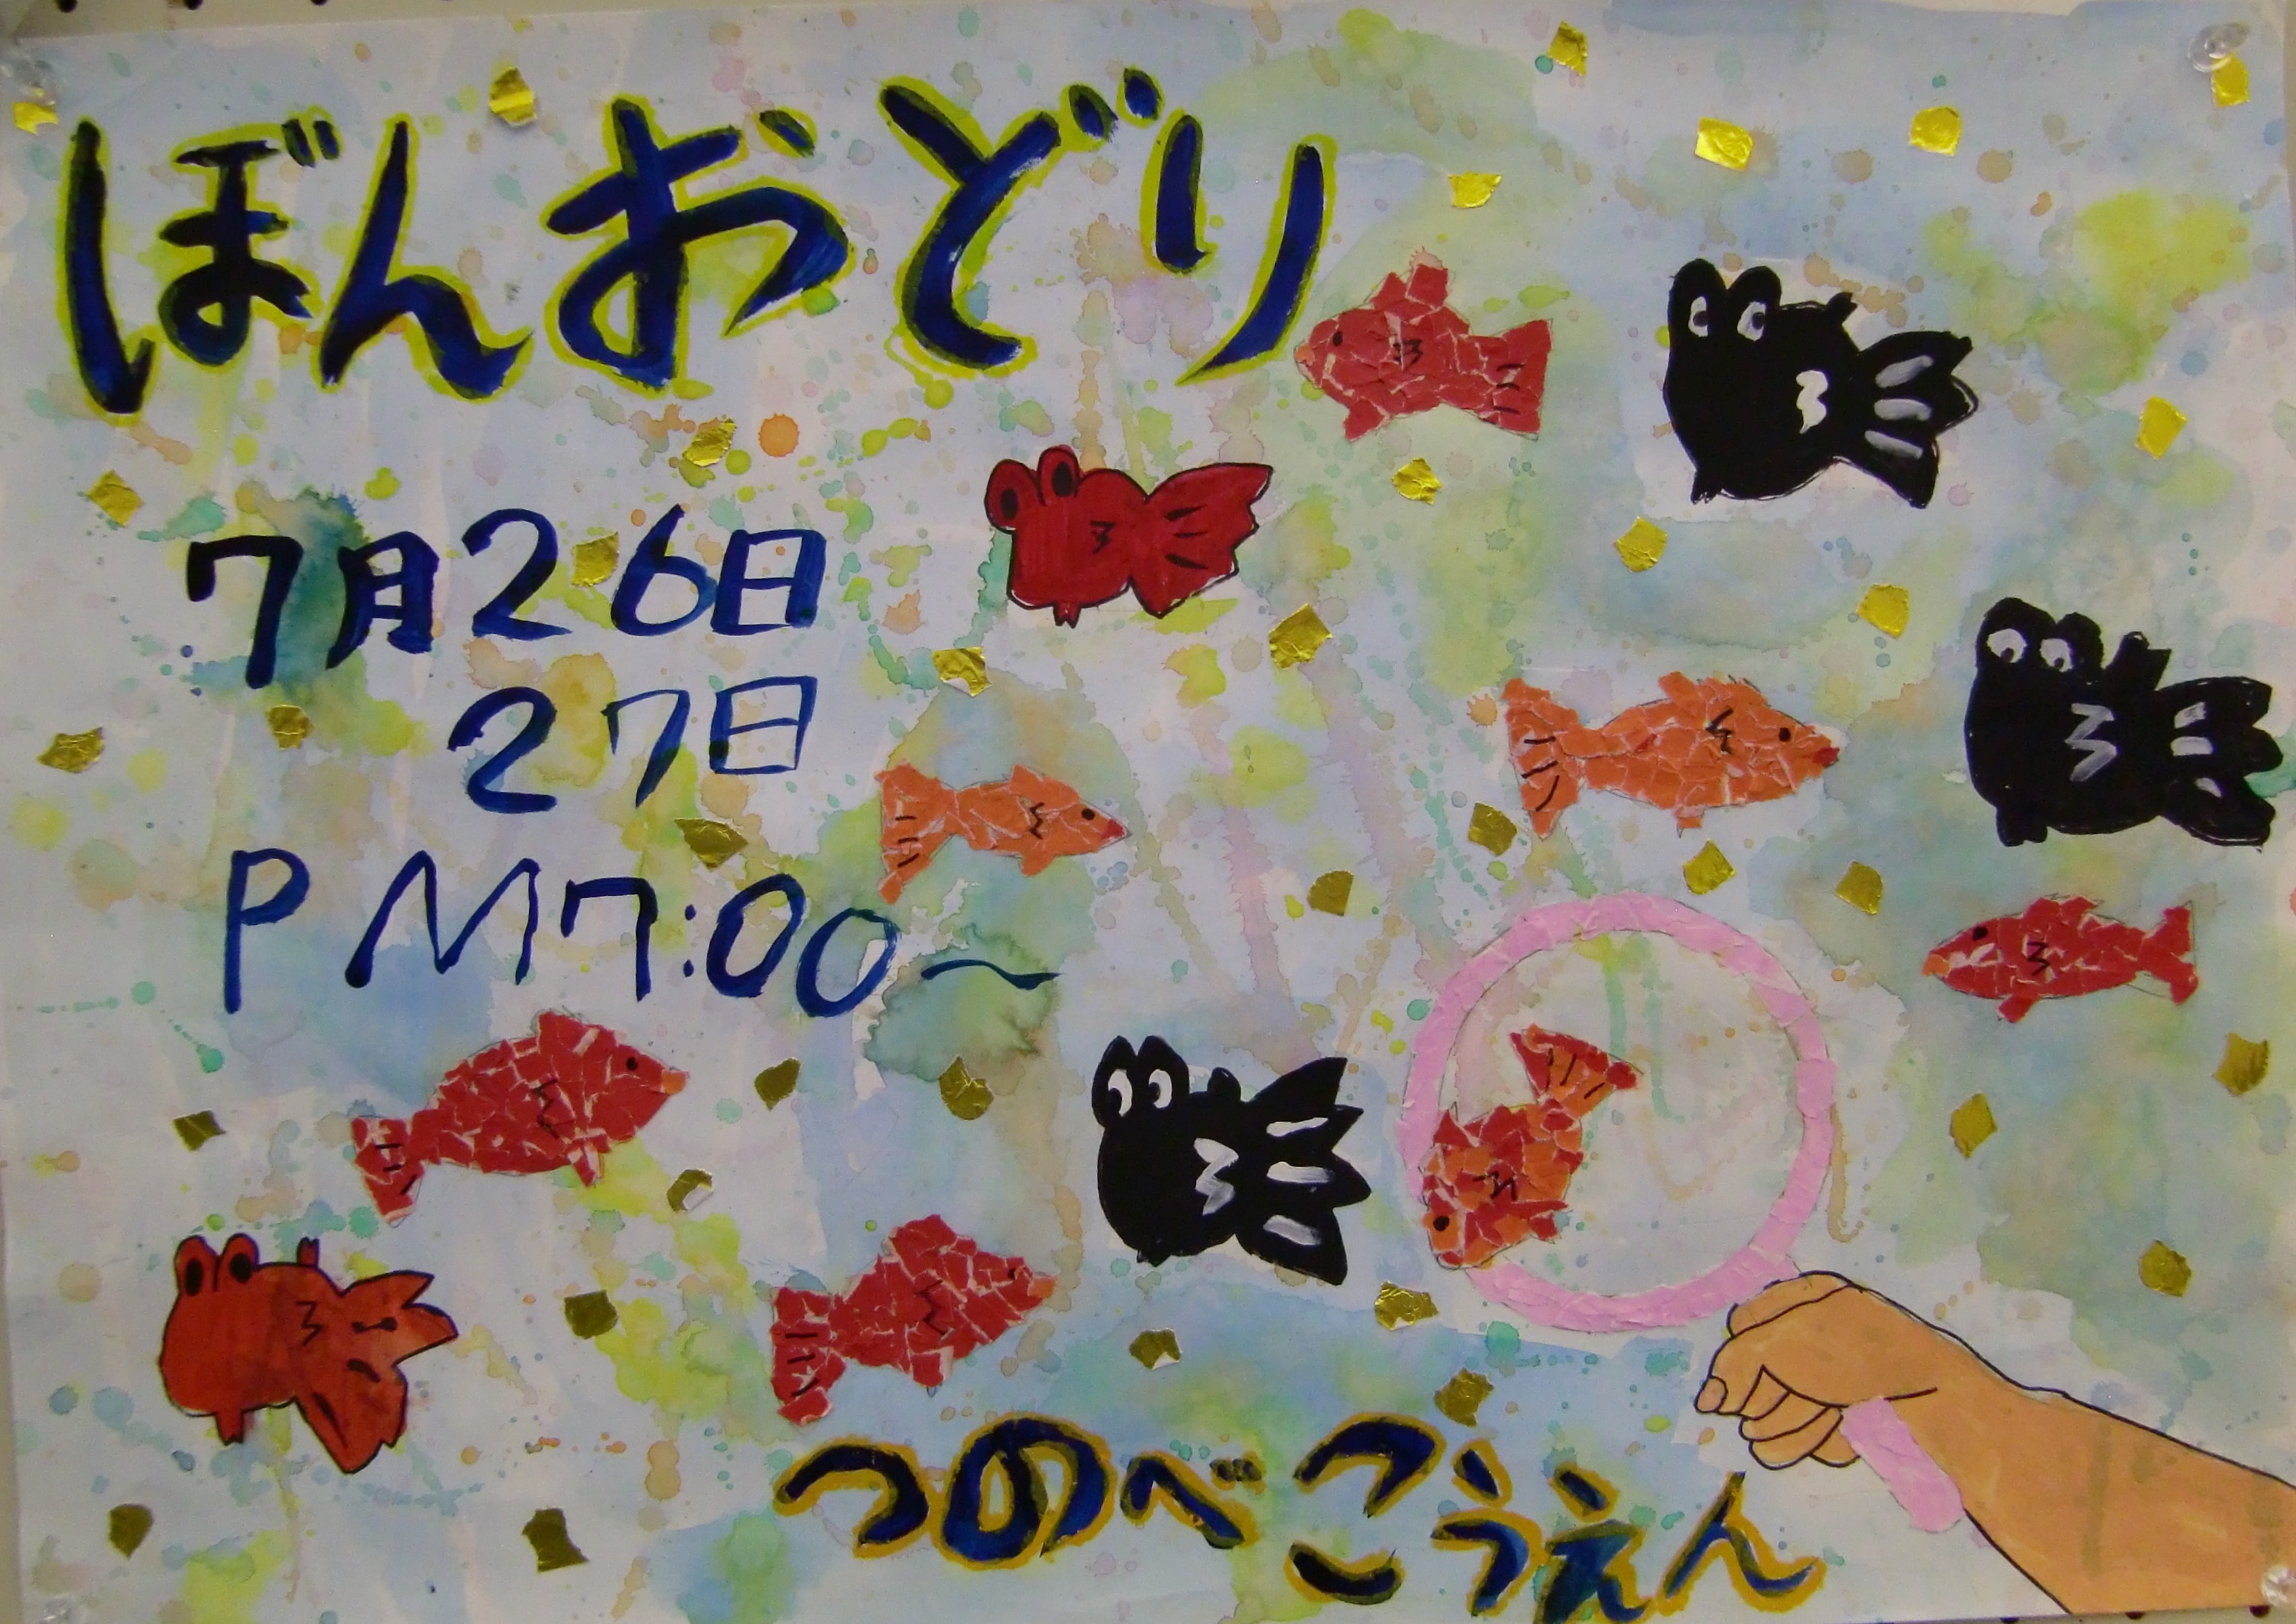 ぼんおどり
7月26日
27日
PM7:00～
つのべこうえん